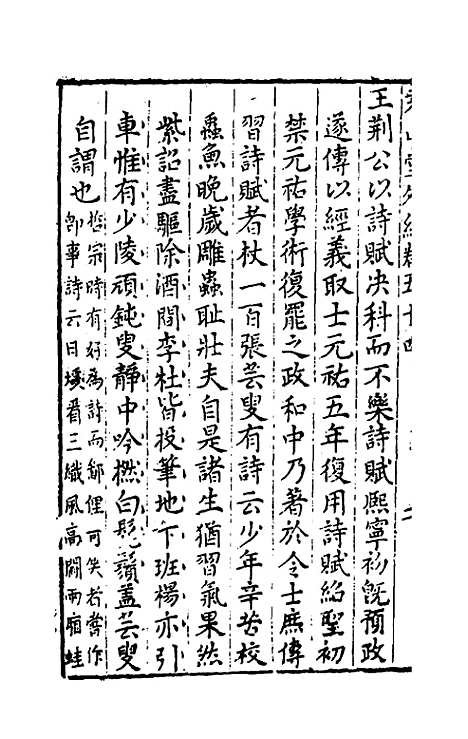 堯山堂外紀類五十四
王荆公以詩賦決科而不樂詩賦熙寧初旣預政
遂傳以經義取士元祐五年復用詩賦紹聖初
禁元祐學術復罷之政和中乃著於令士庶傳
習詩賦者杖一百張芸叟有詩云少年辛苦校
蟲魚晚歲雕蟲耻壯夫自是諸生猶習氣果然
紫詔盡驅除酒間李杜皆投筆地下班楊亦引
車惟有少陵頑鈍叟靜中吟撚白髭鬚盖芸叟
自謂也
哲宗時有好為詩而鄙俚可笑者嘗作
卽事詩云日煖看三織風高鬭兩廂蛙